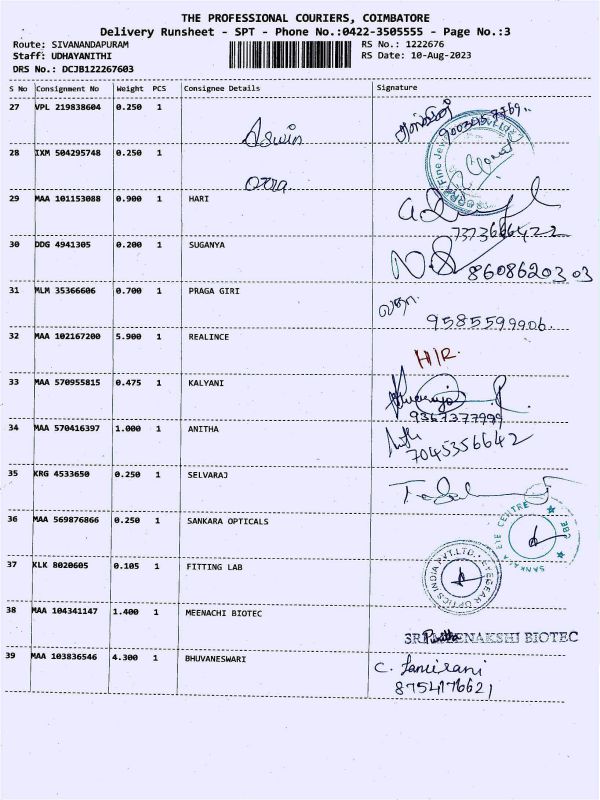 THE PROFESSIONAL COURIERS, COIMBATORE
Delivery Runsheet - SPT - Phone No.:0422-3505555 - Page No.:3
Route: SIVANANDAPURAM RS No.: 1222676
Staff: UDHAYANITHI RS Date: 10-Aug-2023
DRS No.: DCJB122267603
S No Consignment No Weight PCS Consignee Details Signature
27 VPL 219838604 0.250 1
Aswin
28 IXM 504295748 0.250 1
29 MAA 101153088 0.900 1 HARI
7373666422
30 DDG 4941305 0.200 1 SUGANYA
8608620303
31 MLM 35366606 0.700 1 PRAGA GIRI
9585599906.
32 MAA 102167200 5.900 1 REALINCE
H/R.
33 MAA 570955815 0.475 1 KALYANI
9367377999
34 MAA 570416397 1.000 1 ANITHA
7045356642
35 KRG 4533650 0.250 1 SELVARAJ
36 MAA 569876866 0.250 1 SANKARA OPTICALS
EYE CENTRE ★ CBE ★
37 KLK 8020605 0.105 1 FITTING LAB
EYEGEAR OPTICS INDIA PVT.LTD.,
38 MAA 104341147 1.400 1 MEENACHI BIOTEC
SRI MEENAKSHI BIOTEC
39 MAA 103836546 4.300 1 BHUVANESWARI
8754176621